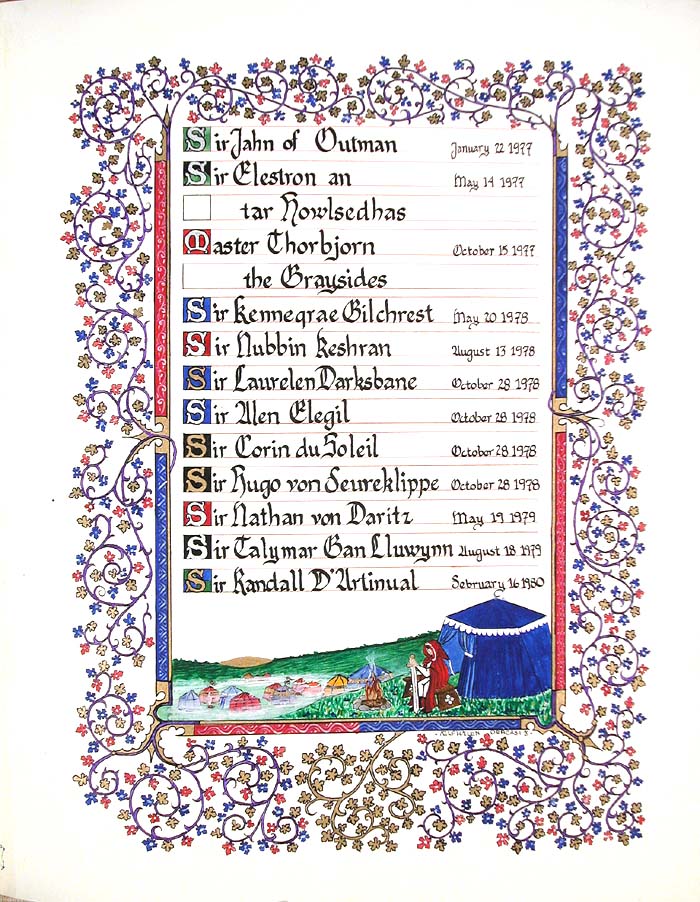 Sir Jahn of Outman January 22 1977
Sir Elestron an May 14 1977
tar Howlsedhas
Master Thorbjorn October 15 1977
the Graysides
Sir Kenneqrae Gilchrest May 20 1978
Sir Nubbin Keshran August 13 1978
Sir Laurelen Darksbane October 28 1978
Sir Alen Elegil October 28 1978
Sir Corin du Soleil October 28 1978
Sir Hugo von Feureklippe October 28 1978
Sir Nathan von Daritz May 19 1979
Sir Talymar Gan Lluwynn August 18 1979
Sir Randall D'Artinual February 16 1980